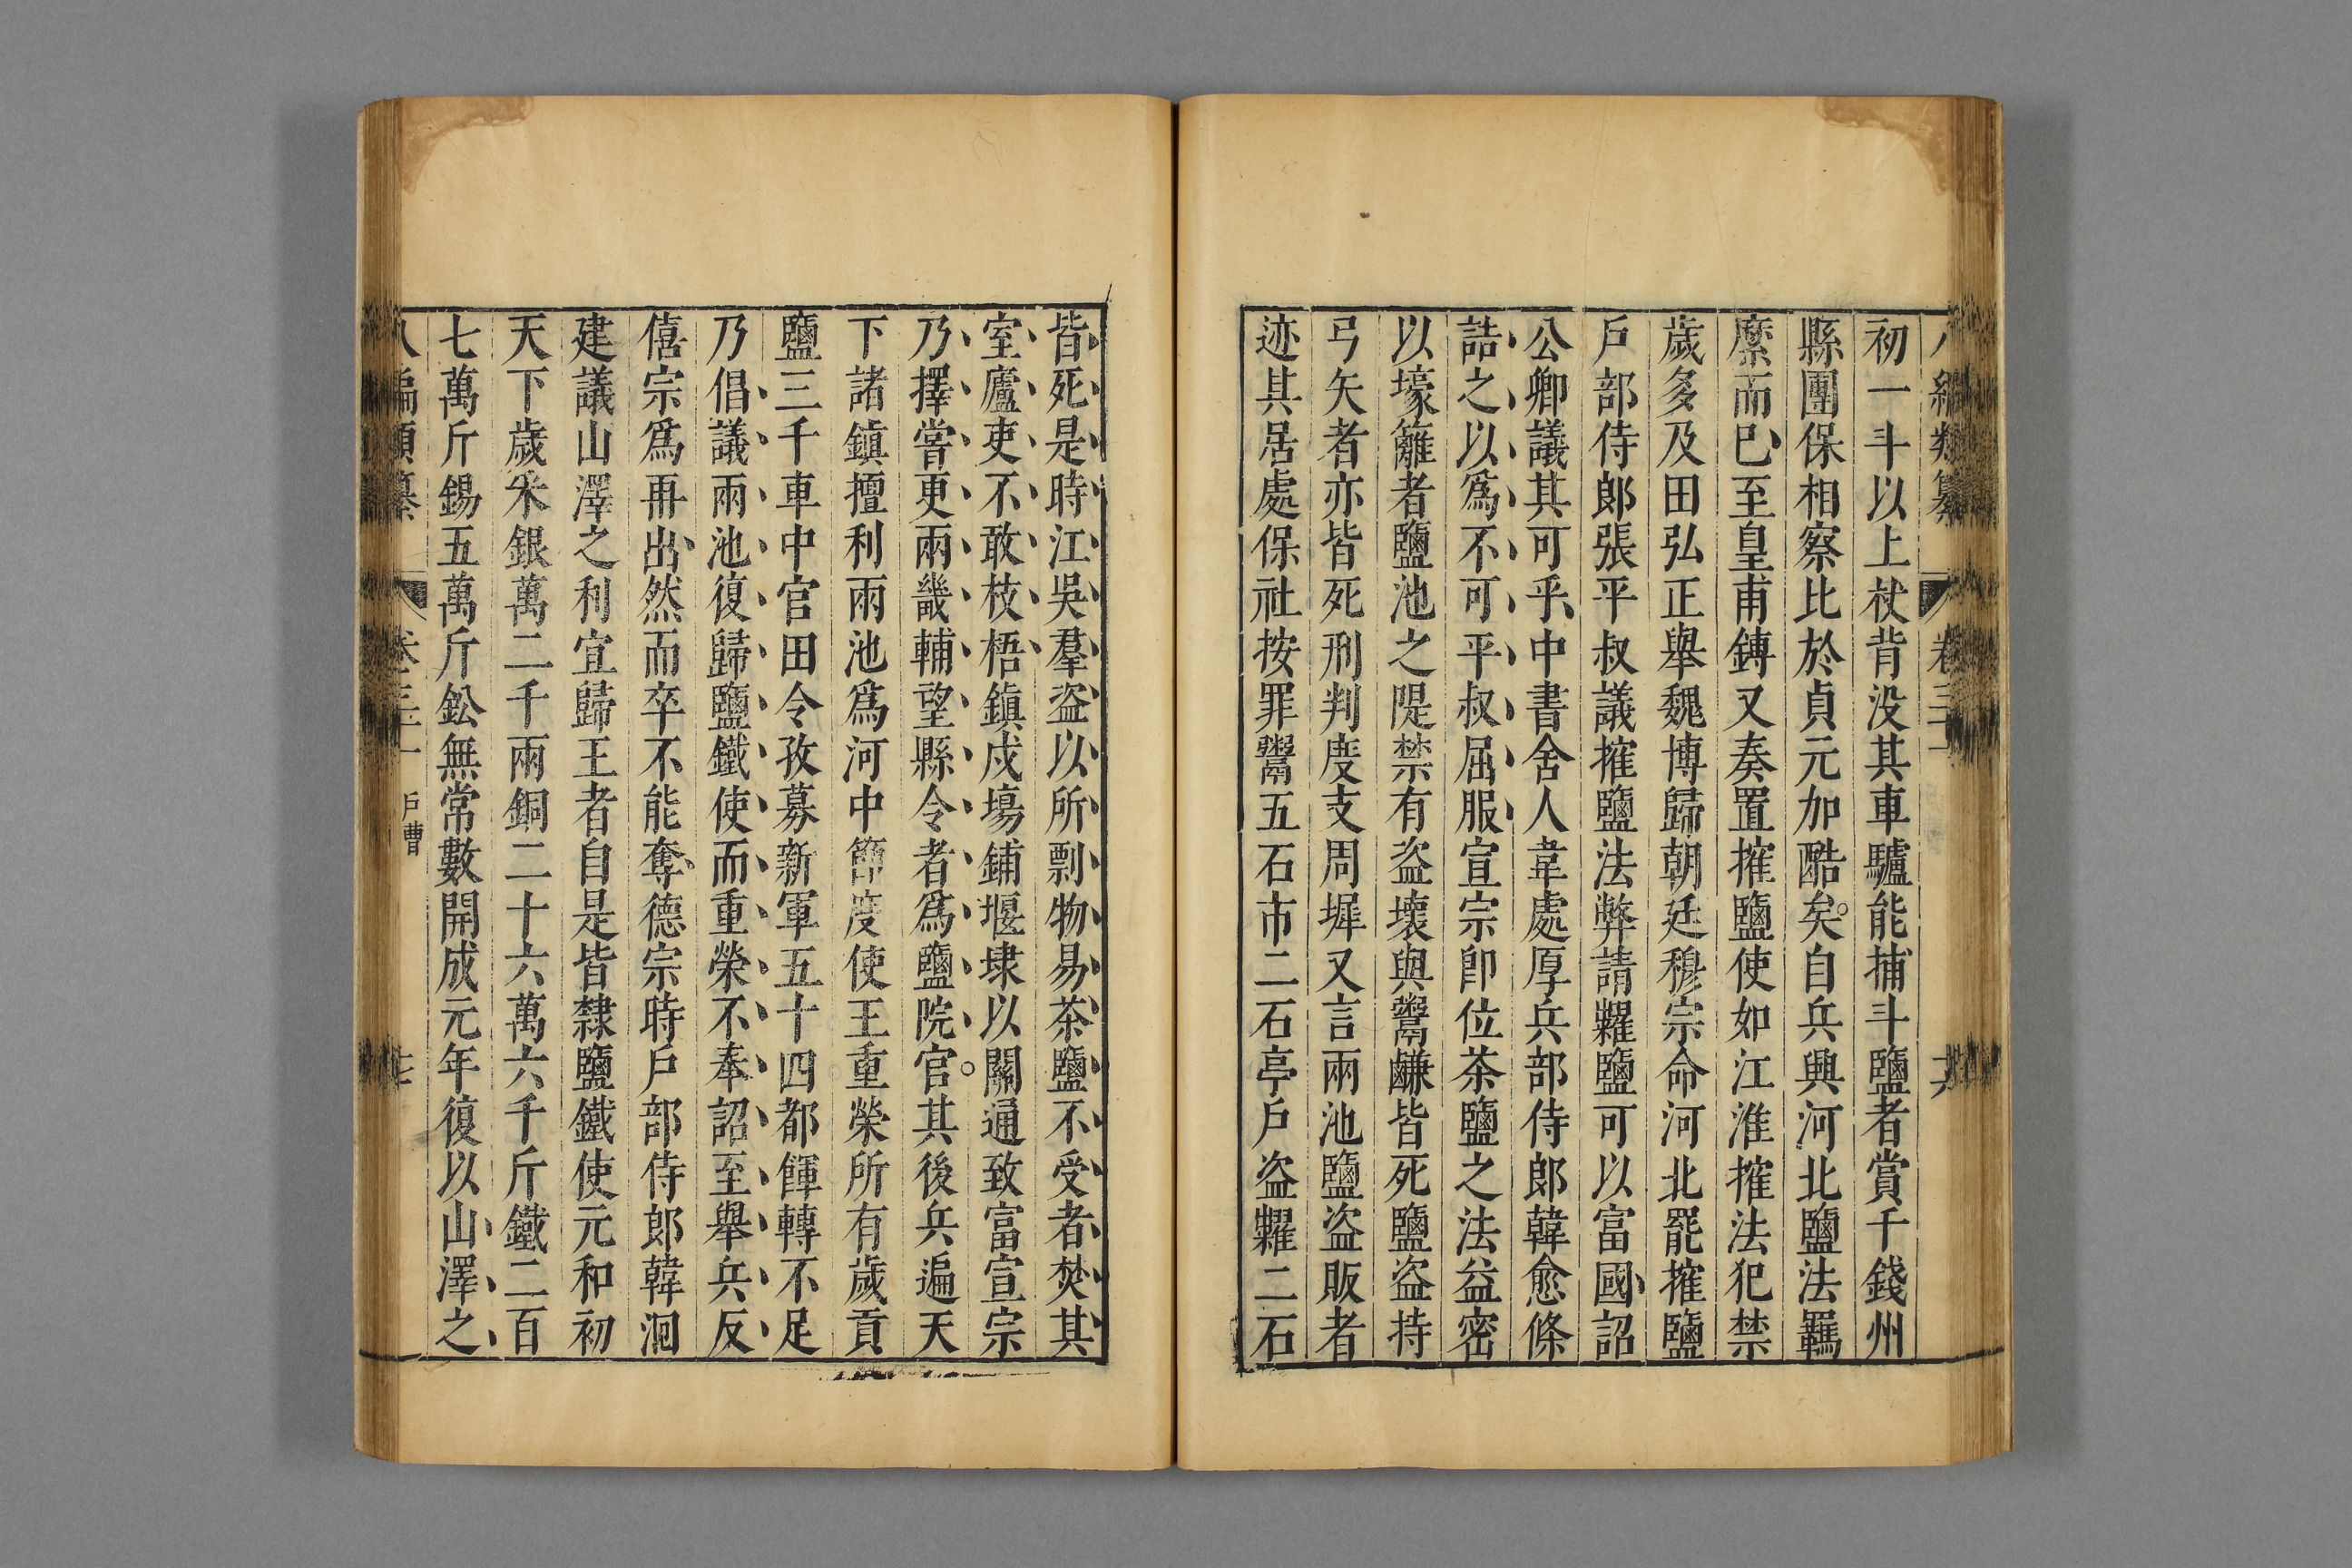 初一斗以上杖背没其車驢能捕斗鹽者賞千錢州
縣團保相察比於貞元加酷矣自兵興河北鹽法羈
縻而已至皇甫鎛又奏置搉鹽使如江淮搉法犯禁
歲多及田弘正舉魏博歸朝廷穆宗命河北罷搉鹽
戶部侍郎張平叔議搉鹽法弊請糶鹽可以富國詔
公卿議其可乎中書舍人韋處厚兵部侍郎韓愈條
詰之以爲不可平叔屈服宣宗卽位茶鹽之法益密
以壕籬者鹽池之隄禁有盗壞與鬻鹻皆死鹽盗持
弓矢者亦皆死刑判度支周墀又言兩池鹽盗販者
迹其居處保社按罪鬻五石市二石亭戶盗糶二石
皆死是時江吳羣盗以所剽物易茶鹽不受者焚其
室廬吏不敢枝梧鎮戍塲鋪堰埭以關通致富宣宗
乃擇嘗更兩畿輔望縣令者爲鹽院官其後兵遍天
下諸鎮擅利兩池爲河中節度使王重榮所有歲貢
鹽三千車中官田令孜募新軍五十四都餫轉不足
乃倡議兩池復歸鹽鐵使而重榮不奉詔至舉兵反
僖宗爲再出然而卒不能奪德宗時戶部侍郎韓洄
建議山澤之利宜歸王者自是皆隸鹽鐵使元和初
天下歲采銀萬二千兩銅二十六萬六千斤鐵二百
七萬斤錫五萬斤鈆無常數開成元年復以山澤之
戶曹